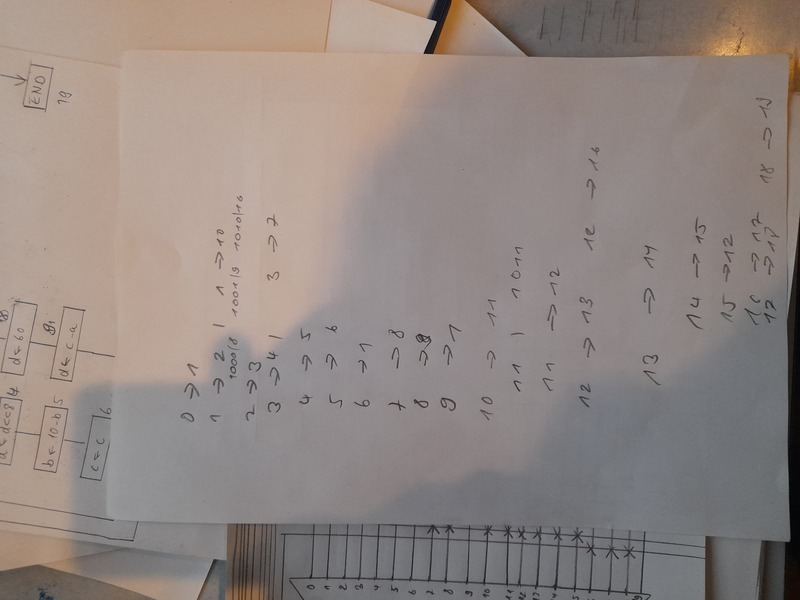 0 → 1
1 → 2 | 1 → 10
1000/8 1001/9 1010/16
2 → 3
3 → 4 | 3 → 7
4 → 5
5 → 6
6 → 1
7 → 8
8 → 9
9 → 1
10 → 11
11 | 1011
11 → 12
12 → 13 12 → 16
13 → 14
14 → 15
15 → 12
16 → 17
17 → 18 18 → 19
END
19
d ← 60
d ← c.a
4
b = 10-b 5
c = c 6
0
1
2
3
4
5
6
7
8
9
10
11
12
13